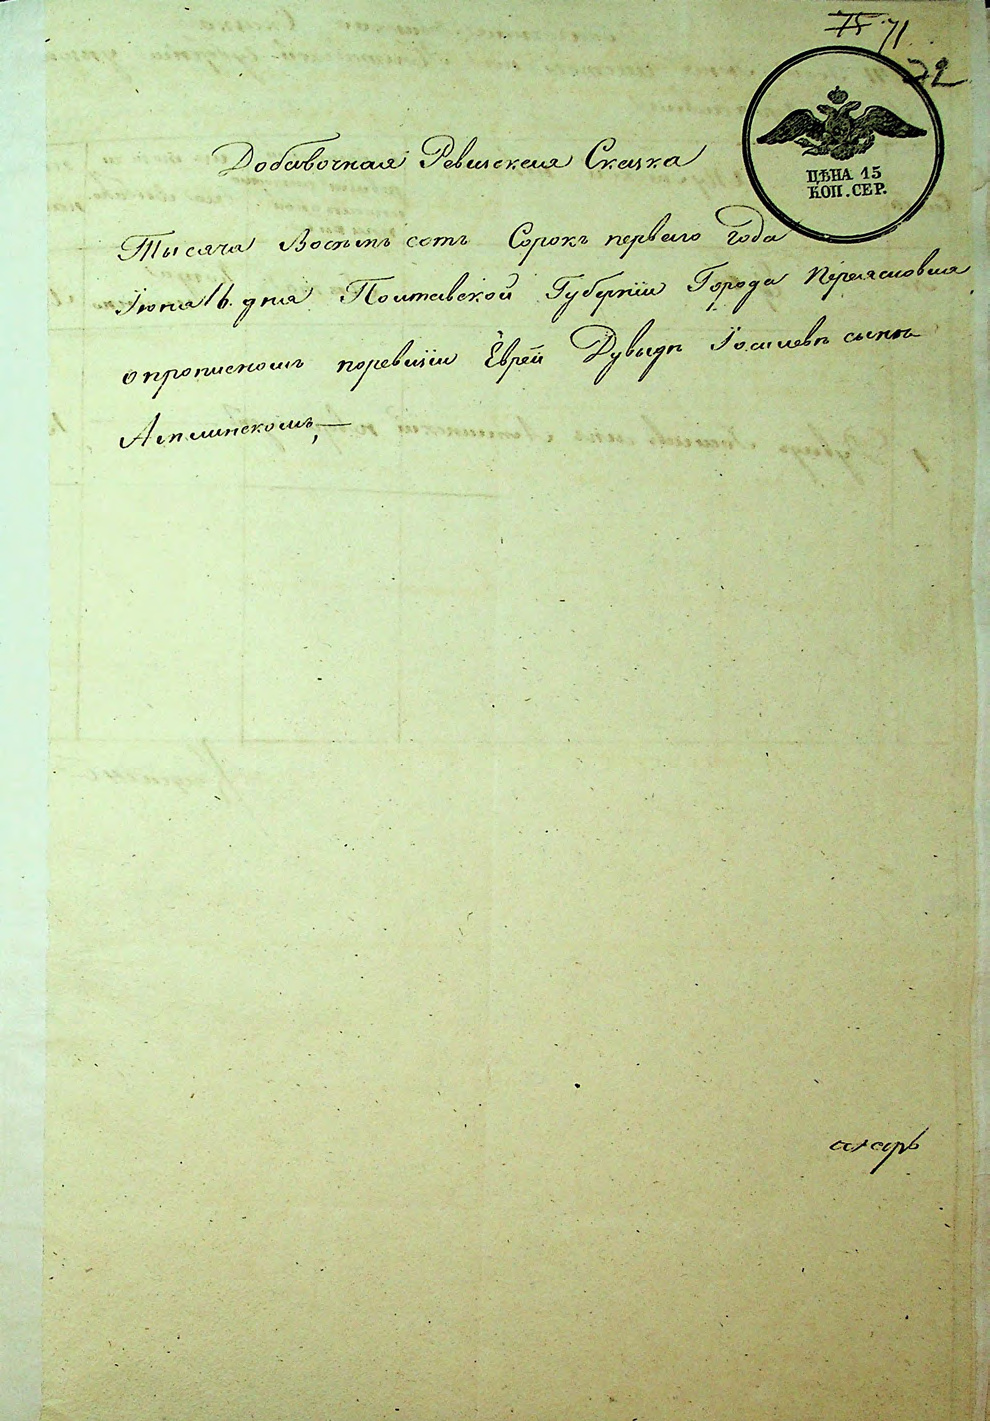 75 71
72
ЦѢНА 15
КОП. СЕР.
Добавочная Ревизская Сказка
Тысяча Восемь сотъ Сорокъ первого Года
Іюня 16 дня Полтавской Губерніи Города Переяславля
о прописномъ поревизіи Еврей Дувыдъ Іосіевъ сынъ